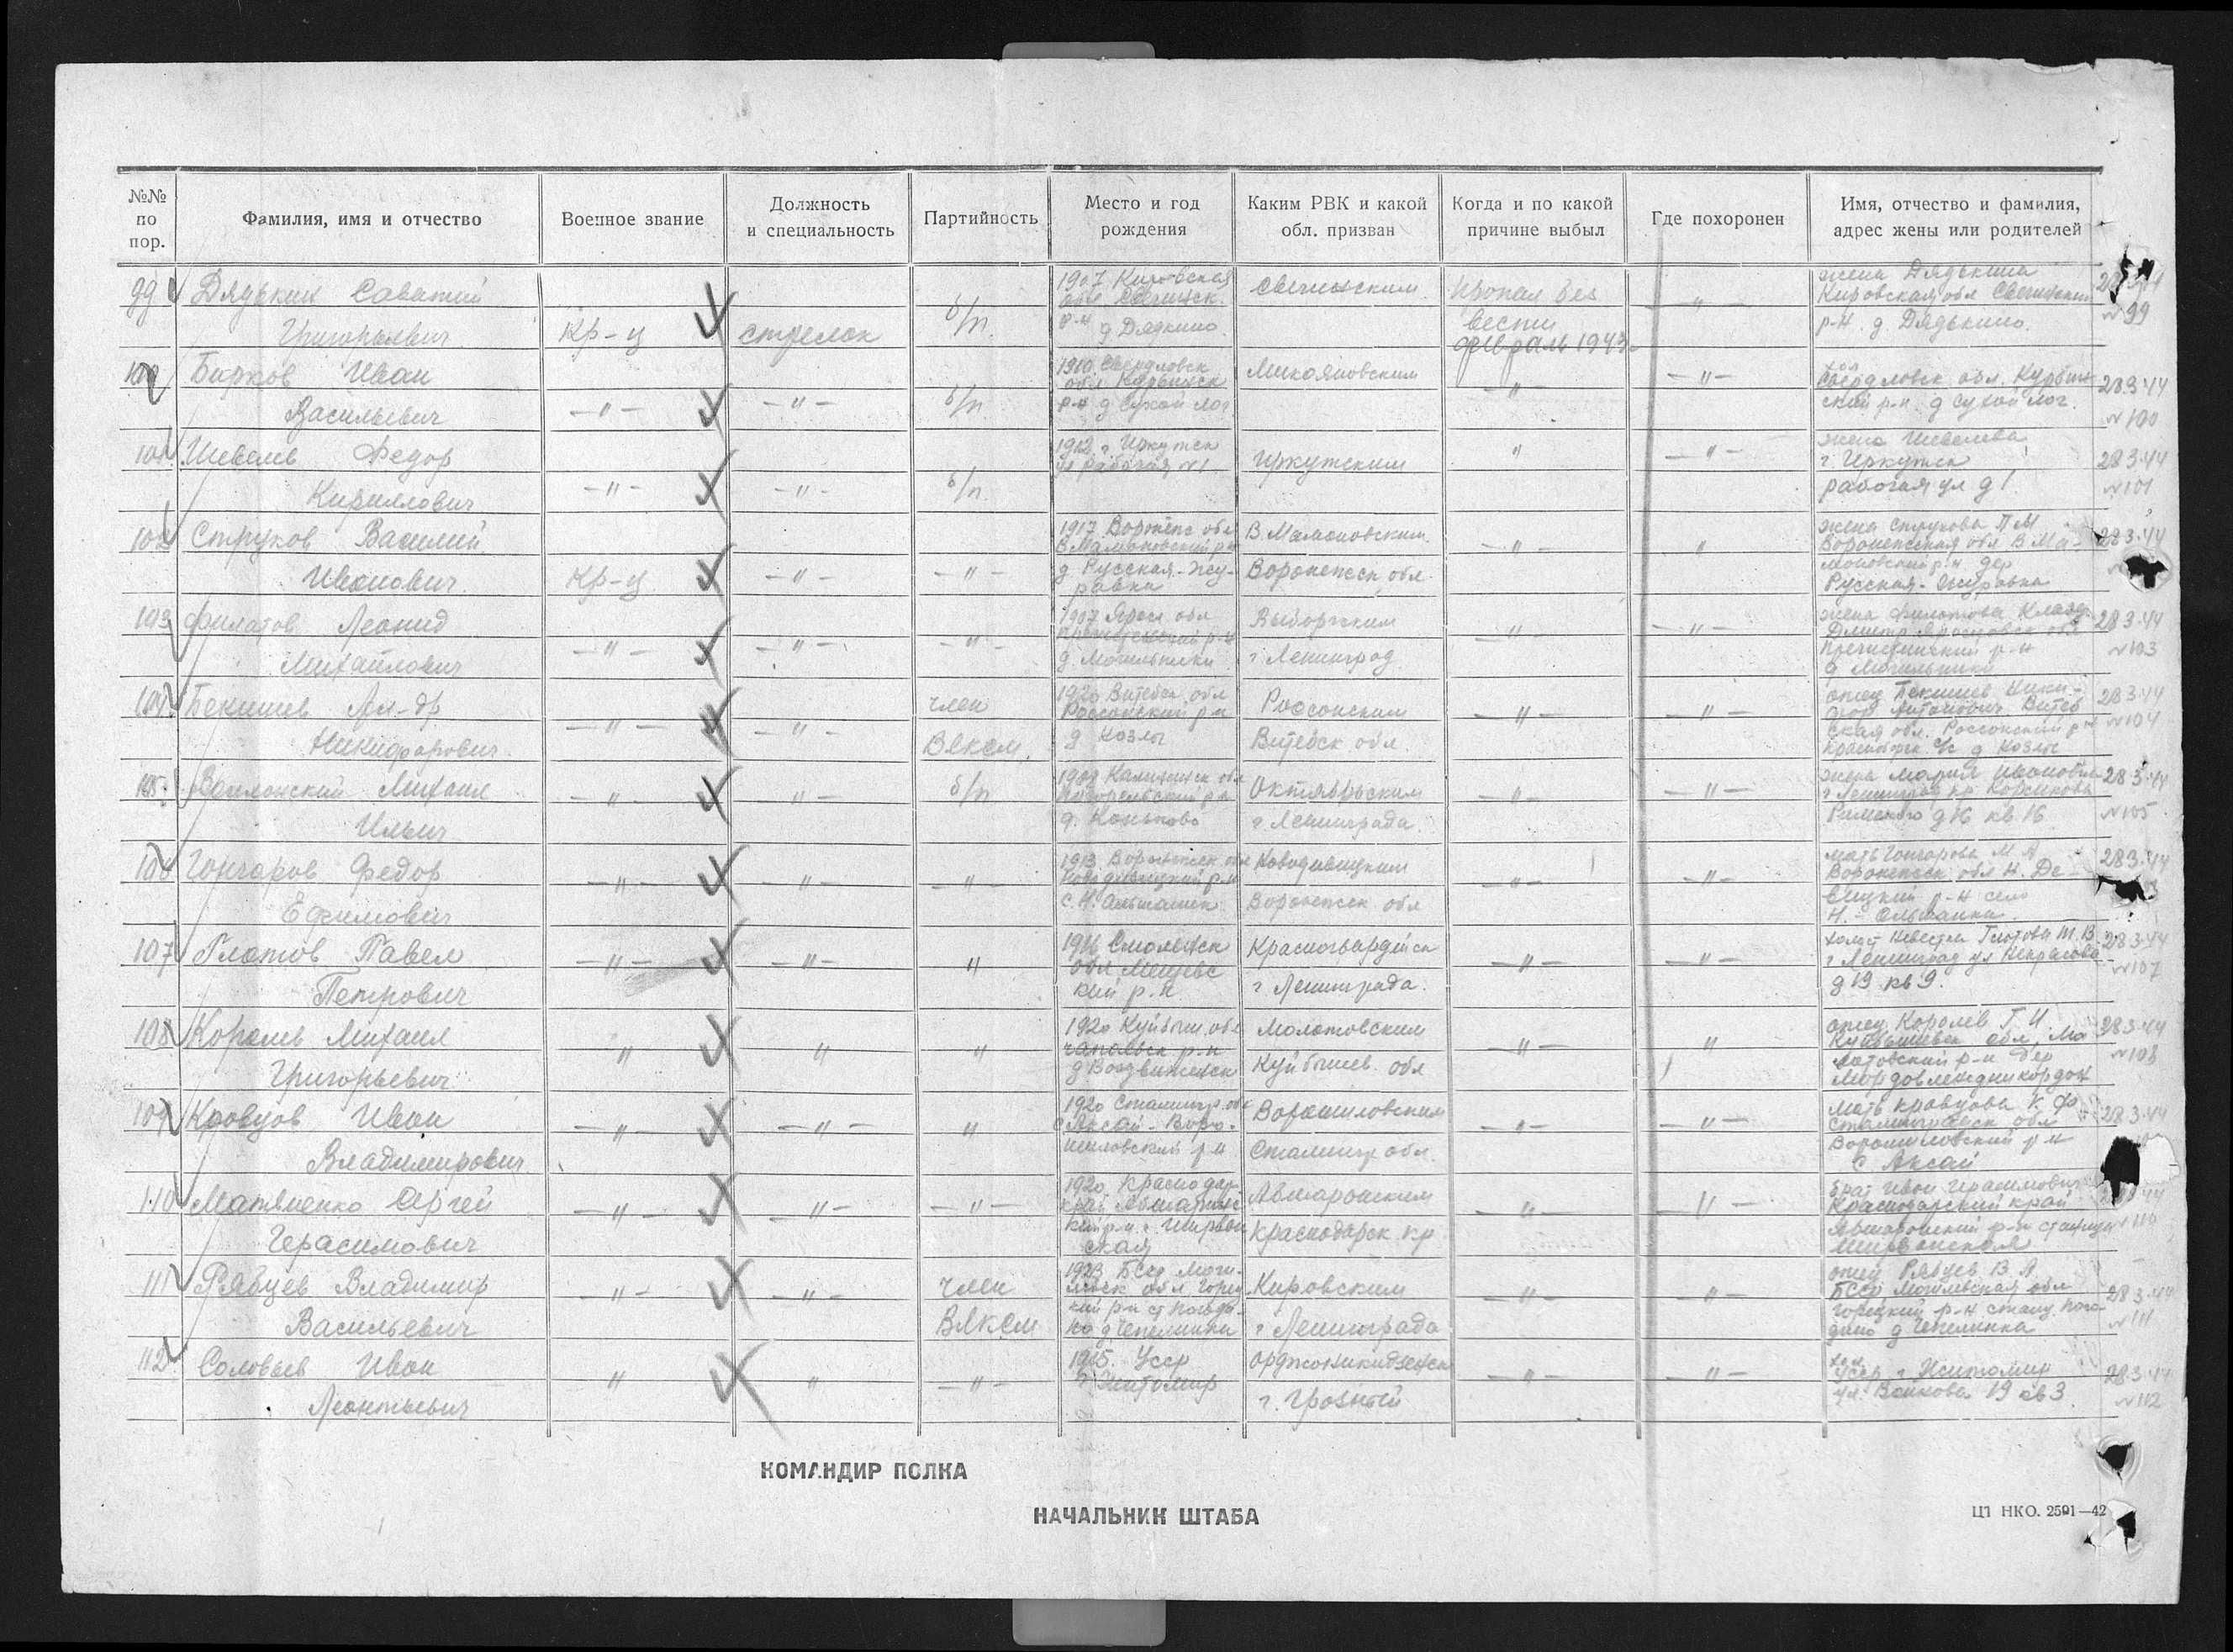 №№ по пор.
Фамилия, имя и отчество
Военное звание
Должность и специальность
Партийность
Место и год рождения
Каким РВК и какой обл. призван
Когда и по какой причине выбыл
Где похоронен
Имя, отчество и фамилия, адрес жены или родителей
99 Дядькин Саватий
Григорьевич
Кр-ц
стрелок
б/п.
1907 Кировская
обл Свечинск.
р-н д Дядкино.
Свечинским
Пропал без
вести
февраль 1943
— " —
жена Дядькина
Кировская обл Свечинский
р-н. д. Дядькино.
№ 99
100 Бирков Иван
Васильевич
— " —
— " —
б/п
1910 Свердловск
р-н д Сухой Лог
Микояновским
— " —
— " —
хол
Свердловск обл.
ский р-н. д Сухой лог.
28.3.44
№ 100
101 Шевелев Федор
Кириллович
— " —
— " —
б/п.
1912 г Иркутск
ул рабочая №1.
Иркутским
"
— " —
жена Шевелева
г. Иркутск
рабочая ул д 1.
28.3.44
№101
102 Струков Василий
Иванович.
Кр-ц
— " —
— " —
1917 Воронеж обл
В.Мамоновский р-н
д Русская-Жу-
равка
В.Мамоновским.
Воронежск обл
— " —
"
жена Струкова П М
Воронежская обл В Ма-
моновский р-н дер
Русская-Журавка
28.3.44
103 Филатов Леонид
Михайлович
— " —
— " —
— " —
1907 Яросл обл
д. Могильники
Выборгским
г Ленинград
— " —
— " —
жена Филатова Клавд.
Пречистинский р-н
д Могильники
28.3.44
№103
104 Бекишев Ал-др
Никифорович
— " —
— " —
член
ВЛКСМ.
1920 Витебск обл
Россонский р-н
д Козлы
Россонским
Витебск обл.
— " —
— " —
отец Бекишев Ники-
фор Антонович Витеб
ская обл. Россонский р-н
д Козлы
28.3.44
№104
105. Михаил
Ильич
— " —
— " —
б/п
Калининск обл
д. Коньково
Октябрьским
г. Ленинграда.
— " —
— " —
жена Мария Ивановна
г Ленинград пр. Корсикова
Римского д16 кв. 16
28.3.44
№105
106 Гончаров Федор
Ефимович
— " —
— " —
— " —
1913 Воронежск обл
с. Н. Ольшанка
Новодивицким
Воронежск обл
— " —
— " —
мать Гончарова М А
Воронежск обл Н. Де-
вицкий р-н село
Н.-Ольшанка.
28.3.44
107 Платов Павел
Петрович
— " —
— " —
"
1916 Смоленск
обл Мещевс
кий р. н
Красногвардейск
г Ленинграда.
— " —
— " —
г Ленинград ул Некрасова
д 19 кв 9.
28.3.44
№107
108 Королев Михаил
Григорьевич
"
"
"
1920 Куйбыш. обл
чапаевск р-н
д Воздвиженск
Молотовским
Куйбышев. обл
— " —
"
отец Королев Г И
Куйбышевск обл, Мо
лотовский р-н дер
28.3.44
№108
109 Кравцов Иван
Владимирович
— " —
— " —
"
1920 Сталингр. обл
с Аксай-Воро-
шиловский р н
Ворошиловским
Сталингр обл.
— " —
— " —
мать Кравцова К Ф
Сталинградск обл
Ворошиловский р н
с Аксай
28.3.44
110 Матвиенко Сергей
Герасимович
— " —
— " —
— " —
1920 Краснодар
край
ская
Краснодарск. кр
— " —
— " —
брат Иван Герасимович
Краснодарский край
р-н станица
Ширванская
№110
111 Рябцев Владимир
Васильевич
— " —
— " —
член
ВЛКСМ
1923 Бсср Моги-
левск обл Горец
кий р-н ст Погоди-
но д Чепелинка
Кировским
г Ленинграда
— " —
— " —
отец Рябцев В А
Бсср Могилевская обл
Горецкий р-н станц. Пого
дино д Чепелинка
28.3.44
№111
112 Соловьев Иван
Леонтьевич
"
"
— " —
1915. Усср
г Житомир
Орджоникидзевск
г. Грозный
— " —
— " —
хол
Усср г Житомир
ул. Войкова 19 кв 3.
28.3.44
№112
КОМАНДИР ПОЛКА
НАЧАЛЬНИК ШТАБА
ЦТ НКО. 2591—42